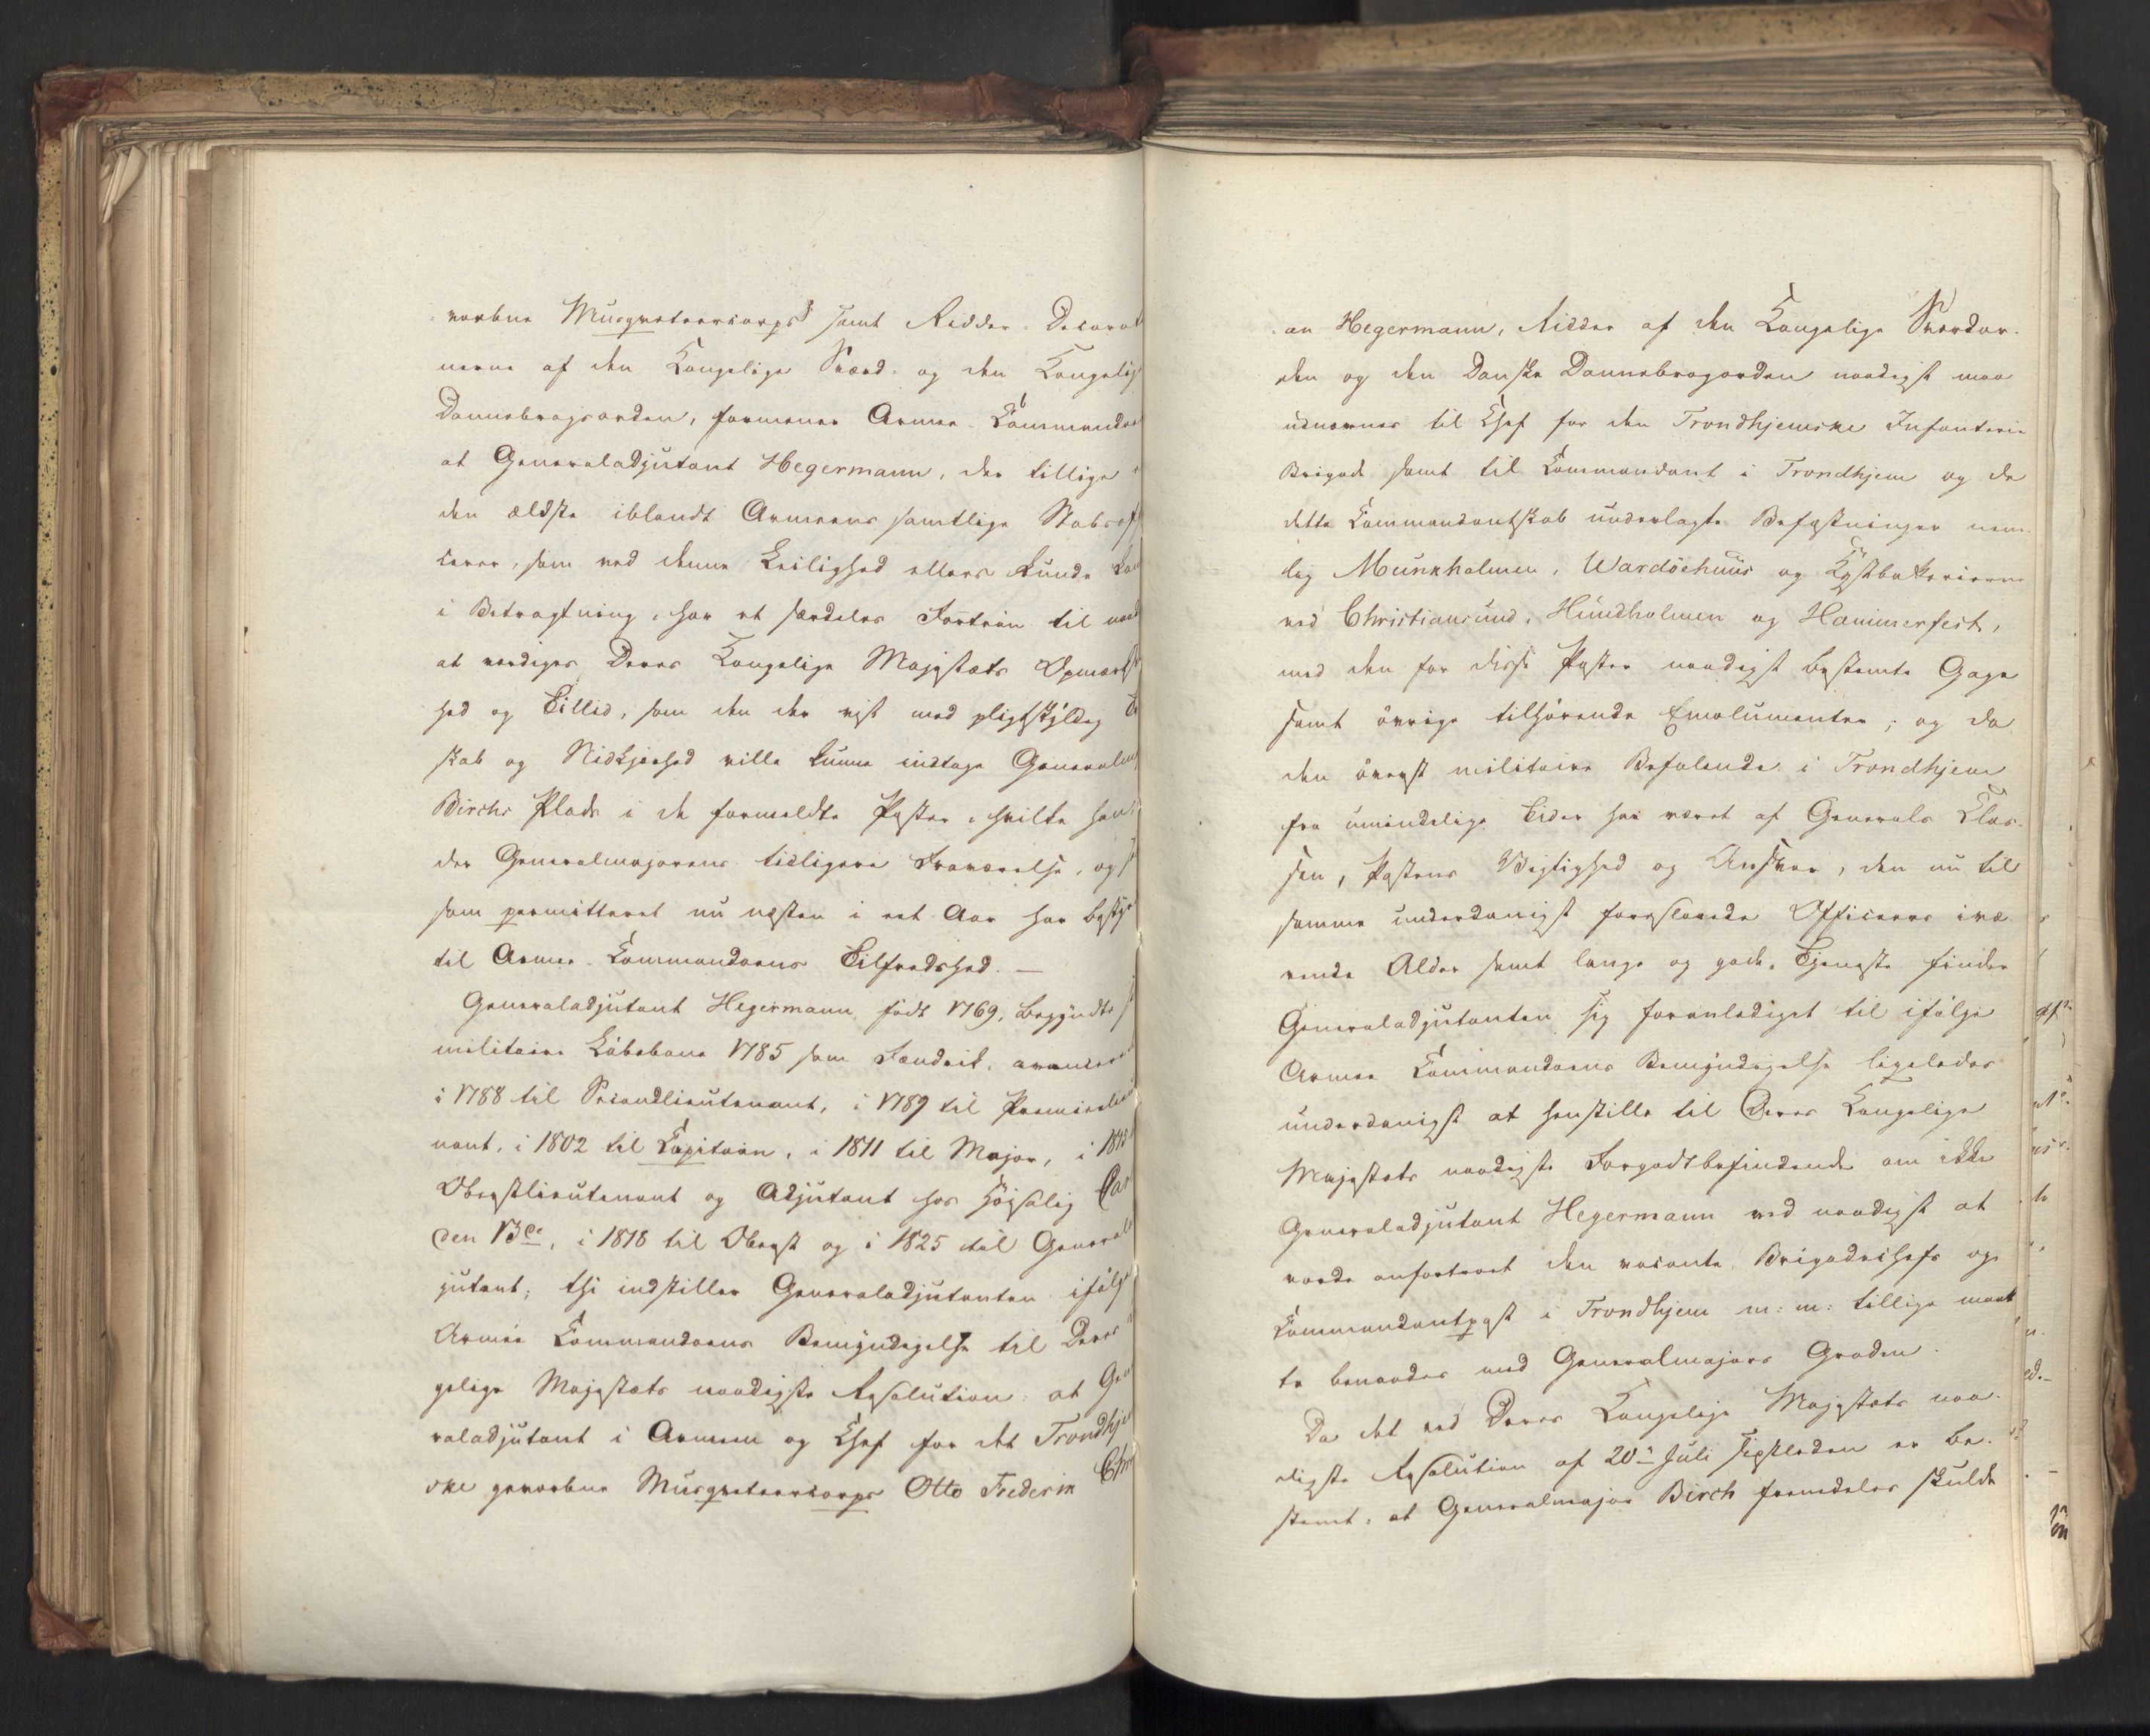 vorbne Musqueteercorps samt Ridder-Decorat
nerne af den Kongelige Sværd- og den Kongelig
Dannebrogsorden, formener Armee-Commando
at Generaladjutant Hegermann, der tillige
den ældste iblandt Armeens samtlige Stabsof
cerer, som ved denne Leilighed ellers kunde ko
i Betragtning, har et særdeles Fortrin til naad
at værdiges Deres Kongelige Majestæts Opmærks
hed og Tillid, som den der vist med pligtskyldig
skab og Nidkjerhed ville kunne indtage General
Birchs Plads i de formeldte Poster, hvilke han
der Generalmajorens tidligere Fraværelse, og
som permitteret nu næsten i eet Aar har besty
til Armee-Commandoens Tilfredshed. —
Generaladjutant Hegermann født 1769, begyndte s
militaire Løbebane 1785 som Fændrik, avancere
i 1788 til Secondlieutenant, i 1789 til Premierlieu
nant, i 1802 til Capitain, i 1811 til Major, i 181
Oberstlieutenant og Adjutant hos Høisalig Car
den 13de, i 1818 til Oberst og i 1825 til General
jutant; thi indstiller Generaladjutanten ifølge
Armee Commandoens Bemyndigelse til Deres
gelige Majestæts naadigste Resolution: at Gen
raladjutant i Armeen og Chef for det Trondhje
ske gevorbne Musqueteercorps Otto Frederik Chr
an Hegermann, Ridder af den Kongelige Sværdor-
den og den Danske Dannebrogorden naadigst maa
udnævnes til Chef for den Trondhjemske Infanterie
Brigade samt til Commandant i Trondhjem og de
dette Commandantskab underlagte Befæstninger nem-
lig Munkholmen, Wardöehuus og Kystbatterierne
ved Christiansund, Hundholmen og Hammerfest,
med den for disse Poster naadigst bestemte Gage
samt øvrige tilhørende Emolumenter; og da
den øverst militaire Befalende i Trondhjem
fra umindelige Tider har været af Generals Clas-
sen, Postens Vigtighed og Ansvar, den nu til
samme underdanigst foreslaaede Officeers ivæ-
rende Alder samt lange og gode Tjeneste finder
Generaladjutanten sig foranlediget til ifølge
Armee Commandoens Bemyndigelse ligeledes
underdanigst at henstille til Deres Kongelige
Majestæts naadigste Forgodtbefindende om ikke
Generaladjutant Hegermann ved naadigst at
vorde anfortroet den vacante Brigadechefs og
Commandantpost i Trondhjem m: m: tillige maat-
te benaades med Generalmajors Graden.
Da det ved Deres Kongelige Majestæts naa-
digste Resolution af 20de Juli sidstleden er be-
stemt: at Generalmajor Birch fremdeles skulde